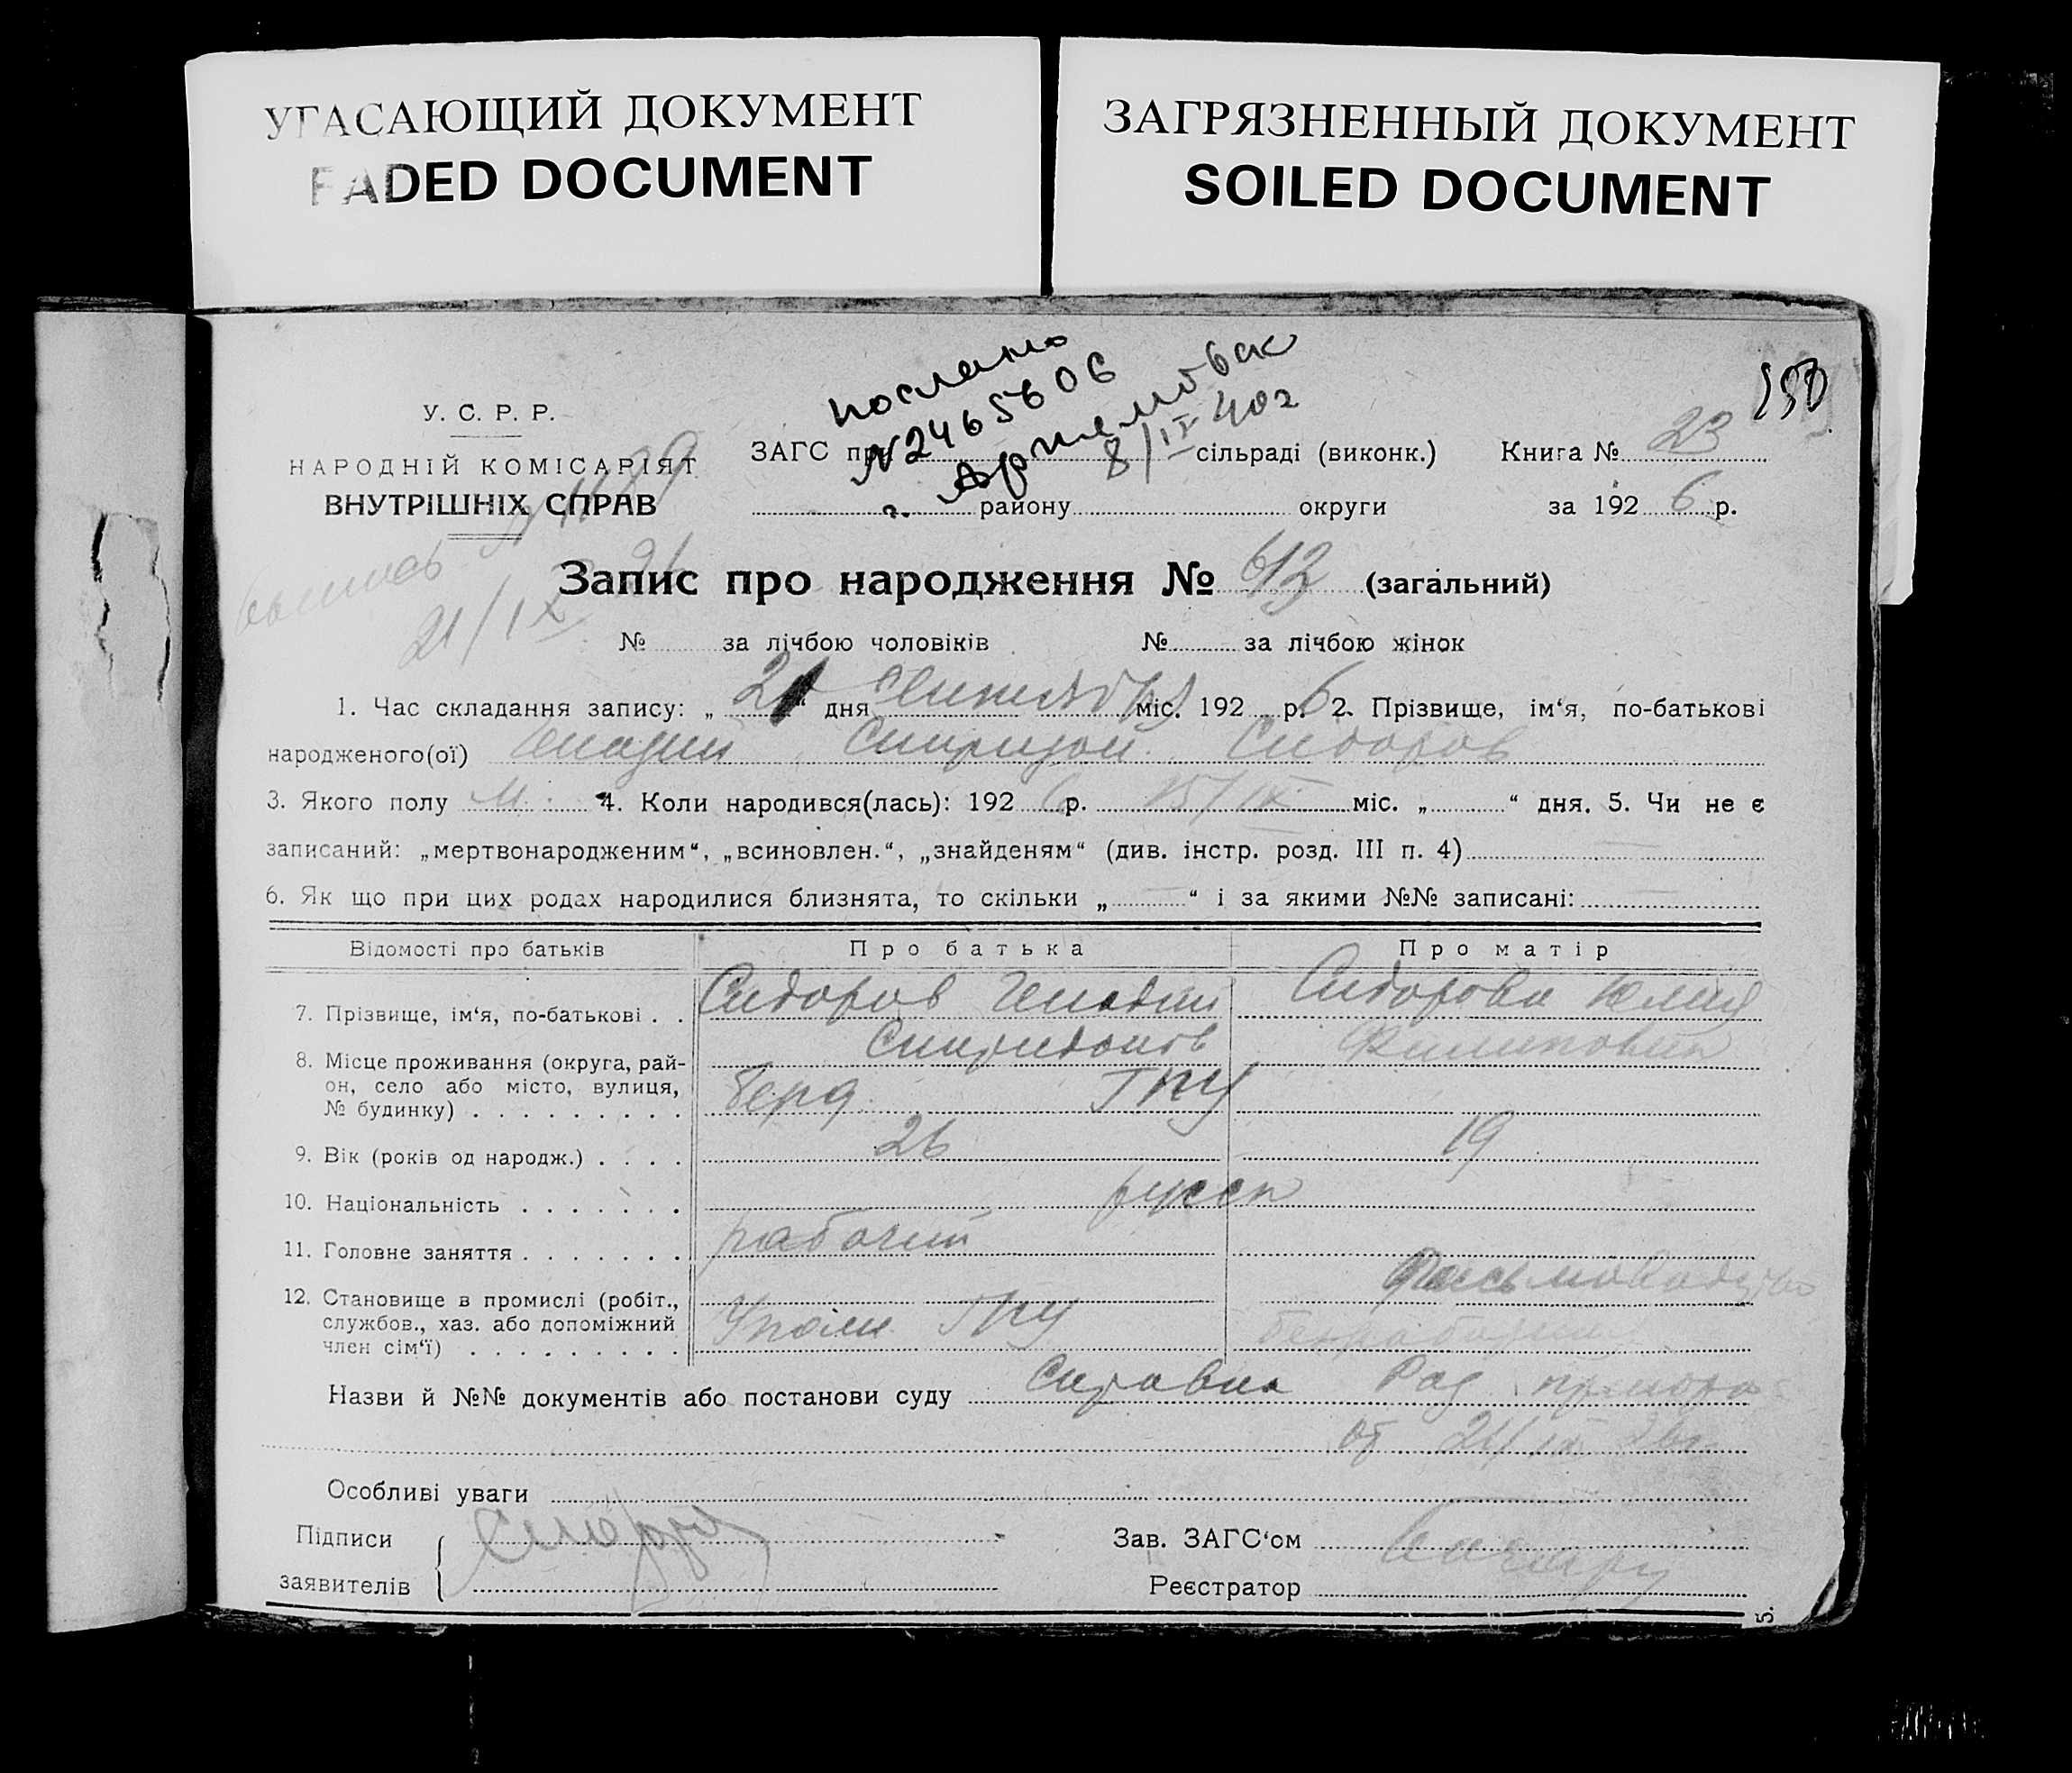 УГАСАЮЩИЙ ДОКУМЕНТ
FADED DOCUMENT
ЗАГРЯЗНЕННЫЙ ДОКУМЕНТ
SOILED DOCUMENT
послано
N2465606
г. Артемовск
8/IX 40г
У. С. Р. Р.
НАРОДНІЙ КОМІСАРІЯТ
ВНУТРІШНІХ СПРАВ
21/IX 26
ЗАГС при сільраді (виконк.) Книга № 23
району округи за 1926 р.
Запис про народження № 612 (загальний)
№ за лічбою чоловіків № за лічбою жінок
1. Час складання запису: „21“ дня Сентября міс. 192 р. 6 2. Прізвище, ім‘я, по-батькові
народженого(ої) Сидоров
3. Якого полу м. 4. Коли народився(лась): 1926 р. 15/IX міс. „ “ дня. 5. Чи не є
записаний: „мертвонародженим“, „всиновлен.“, „знайденям“ (див. інстр. розд. III п. 4)
6. Як що при цих родах народилися близнята, то скільки „ — “ і за якими №№ записані: —
Відомості про батьків Про батька Про матір
7. Прізвище, ім‘я, по-батькові . . Сидоров Генадии Сидорова Юлия
Спиридонов Филиповна
8. Місце проживання (округа, рай-
он, село або місто, вулиця,
№ будинку) . . . . . . . . . Берд. ГПУ
9. Вік (років од народж.) . . . . 26 19
10. Національність . . . . . . . русск
11. Головне заняття . . . . . . . рабочий
12. Становище в промислі (робіт.,
службов., хаз. або допоміжний
член сім‘ї) . . . . . . . . . Уполн. ГПУ
Назви й №№ документів або постанови суду Справка
от 21/IX 26г.
Особливі уваги
Підписи
заявителів
Зав. ЗАГС‘ом
Реєстратор
5.